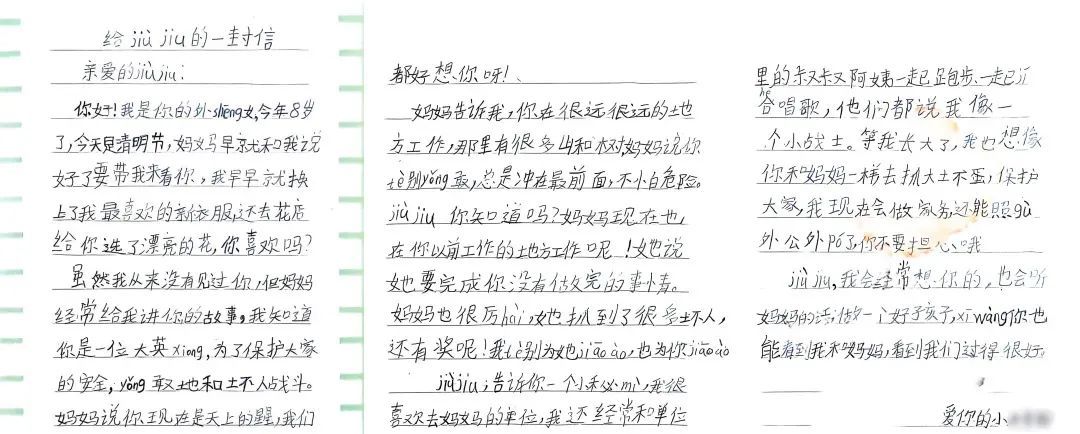 给jiù jiu的一封信
亲爱的jiùjiu：
你好！我是你的外shēng女，今年8岁
了，今天是清明节，妈妈早就和我说
好了要带我来看你，我早早就换
上了我最喜欢的新衣服，还去花店
给你选了漂亮的花，你喜欢吗？
虽然我从来没有见过你，但妈妈
经常给我讲你的故事，我知道
你是一位大英xiong，为了保护大家
的安全，yǒng敢地和土不人战斗。
妈妈说你现在是天上的星，我们
都好想你呀！
妈妈告诉我，你在很远很远的地
方工作，那里有很多山和树，妈妈说你
特别yǒng敢，总是冲在最前面，不小白危险。
jiùjiu 你知道吗？妈妈现在也
在你以前工作的地方工作呢！她说
她要完成你没有做完的事情。
妈妈也很厉hài，她扒到了很多土不人，
还有奖呢！我特别为她jiāo ào，也为你jiāoào
jiùjiu，告诉你一个小秘mì，我很
喜欢去妈妈的单位，我还经常和单位
里的叔叔阿姨一起跑步、一起
合唱歌，他们都说我像一
个小战士。等我长大了，我也想像
你和妈妈一样去扒大土不蛋，保护
大家，我现在会做家务还能照gù
外公外pó了，你不要担心哦
jiùjiu，我会经常想你的，也会听
妈妈的话，做一个好孩子，xīwàng你也
能看到我和妈妈，看到我们过得很好。
爱你的小